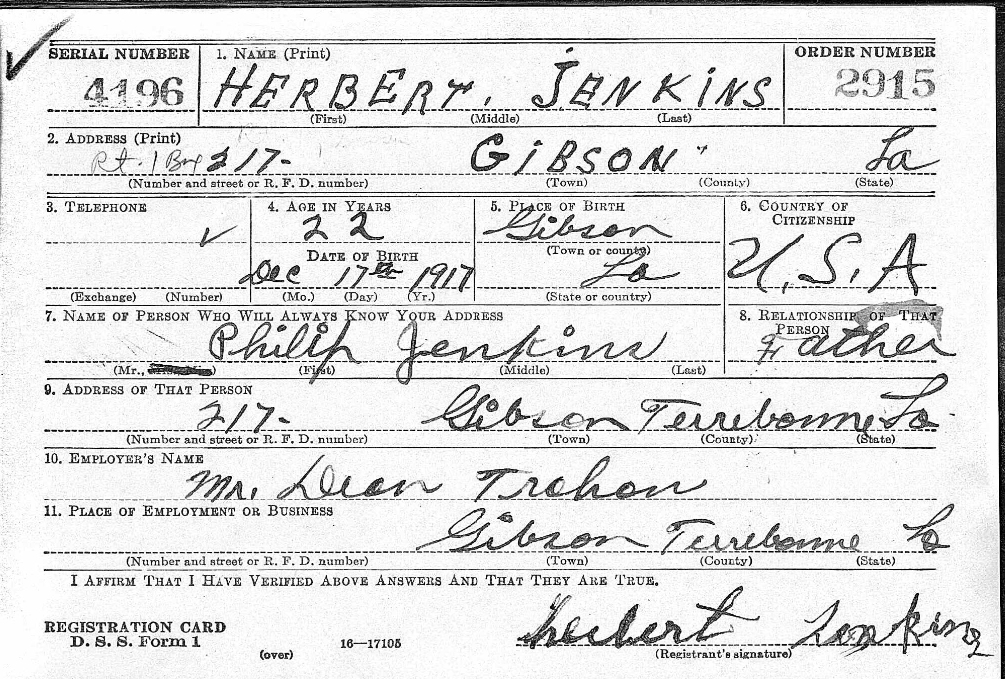 SERIAL NUMBER 1. NAME (Print) ORDER NUMBER
4196 HERBERT. JENKINS 2915
(First) (Middle) (Last)
2. ADDRESS (Print)
Rt. 1 Box 217- GIBSON La
(Number and street or R. F. D. number) (Town) (County) (State)
3. TELEPHONE 4. AGE IN YEARS 5. PLACE OF BIRTH 6. COUNTRY OF CITIZENSHIP
22 Gibson
DATE OF BIRTH (Town or county)
Dec 17th 1917 La U.S.A
(Exchange) (Number) (Mo.) (Day) (Yr.) (State or country)
7. NAME OF PERSON WHO WILL ALWAYS KNOW YOUR ADDRESS 8. RELATIONSHIP OF THAT PERSON
Philip Jenkins Father
(Mr., ) (First) (Middle) (Last)
9. ADDRESS OF THAT PERSON
217- Gibson Terrebonne La
(Number and street or R. F. D. number) (Town) (County) (State)
10. EMPLOYER'S NAME
Mr. Dean
11. PLACE OF EMPLOYMENT OR BUSINESS
Gibson Terrebonne La
(Number and street or R. F. D. number) (Town) (County) (State)
I AFFIRM THAT I HAVE VERIFIED ABOVE ANSWERS AND THAT THEY ARE TRUE.
REGISTRATION CARD
D. S. S. Form 1 Herbert Jenkins
(over) 16—17105 (Registrant's signature)